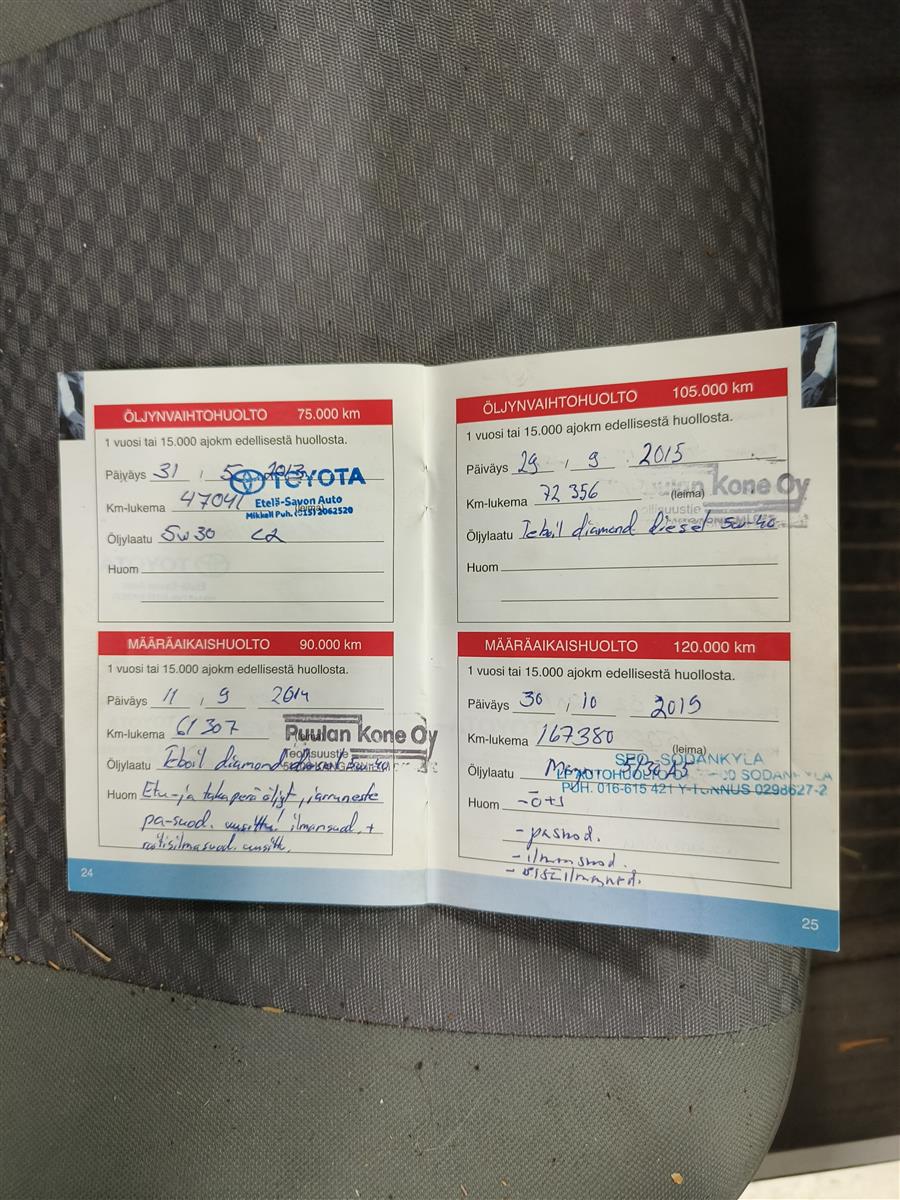 ÖLJYNVAIHTOHUOLTO 75.000 km
1 vuosi tai 15.000 ajokm edellisestä huollosta.
Päiväys 31 , 5 2013
TOYOTA
Km-lukema 47041 (leima)
Etelä-Savon Auto
Mikkeli Puh. (015) 2062520
Öljylaatu 5w30 C2
Huom
MÄÄRÄAIKAISHUOLTO 90.000 km
1 vuosi tai 15.000 ajokm edellisestä huollosta.
Päiväys 11 , 9 2014
Km-lukema 61307
Puulan Kone Oy
Teollisuustie
Öljylaatu Teboil diamond diesel 5w-40
Huom Etu- ja takaperä öljyt, jarruneste
pa-suod. uusittu! ilmansuod. +
raitisilmasuod. uusittu.
24
ÖLJYNVAIHTOHUOLTO 105.000 km
1 vuosi tai 15.000 ajokm edellisestä huollosta.
Päiväys 29 , 9 2015
Km-lukema 72 356 (leima)
Puulan Kone Oy
Öljylaatu Teboil diamond Diesel 5w-40
Huom
MÄÄRÄAIKAISHUOLTO 120.000 km
1 vuosi tai 15.000 ajokm edellisestä huollosta.
Päiväys 30 , 10 2019
Km-lukema 167380 (leima)
SEO-SODANKYLÄ
Öljylaatu
PUH. 016-615 421 Y-TUNNUS 0298627-2
Huom - ö+s
- pasuod.
- ilmansuod.
25